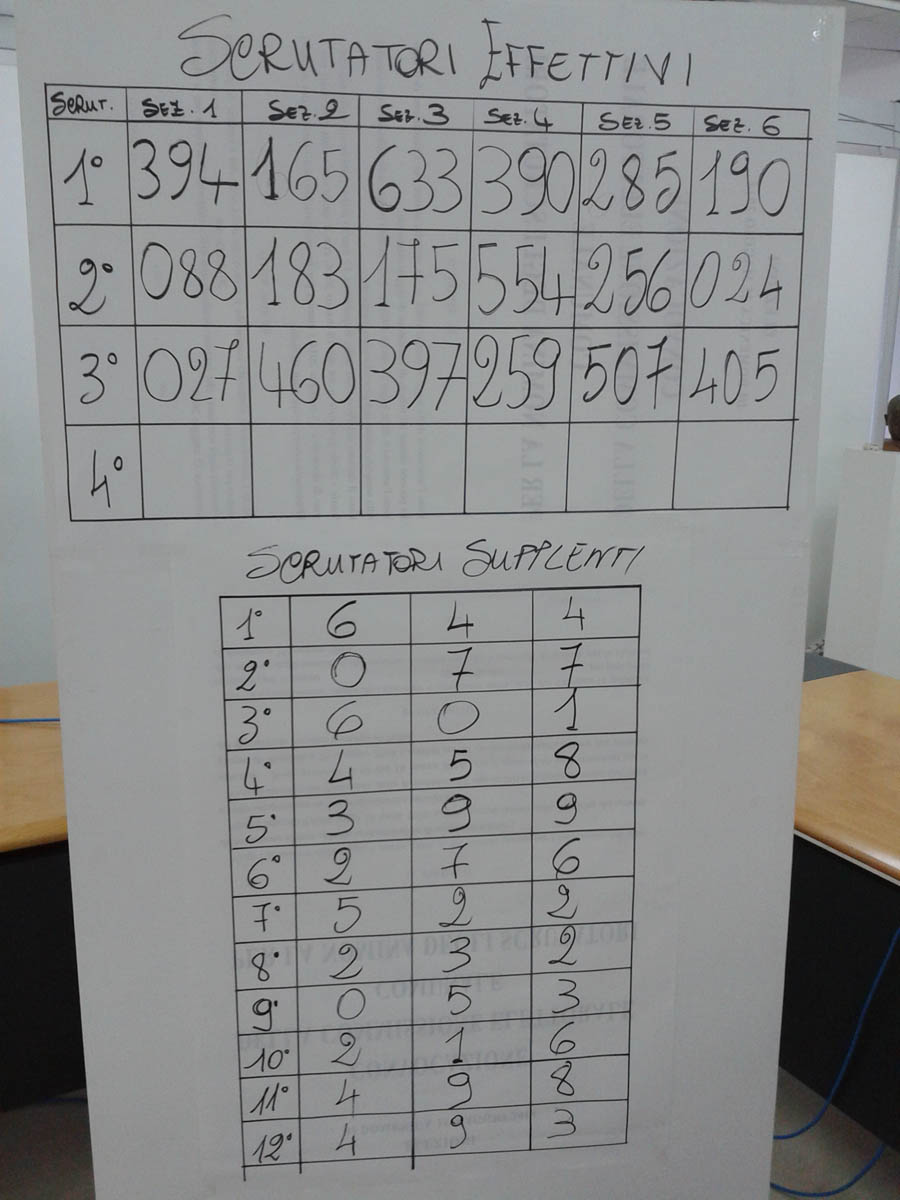 SCRUTATORI EFFETTIVI
SCRUT. SEZ. 1 SEZ. 2 SEZ. 3 SEZ. 4 SEZ. 5 SEZ. 6
1° 394 165 633 390 285 190
2° 088 183 175 554 256 024
3° 027 460 397 259 507 405
4°
SCRUTATORI SUPPLENTI
1° 6 4 4
2° 0 7 7
3° 6 0 1
4° 4 5 8
5° 3 9 9
6° 2 7 6
7° 5 2 2
8° 2 3 2
9° 0 5 3
10° 2 1 6
11° 4 9 8
12° 4 9 3